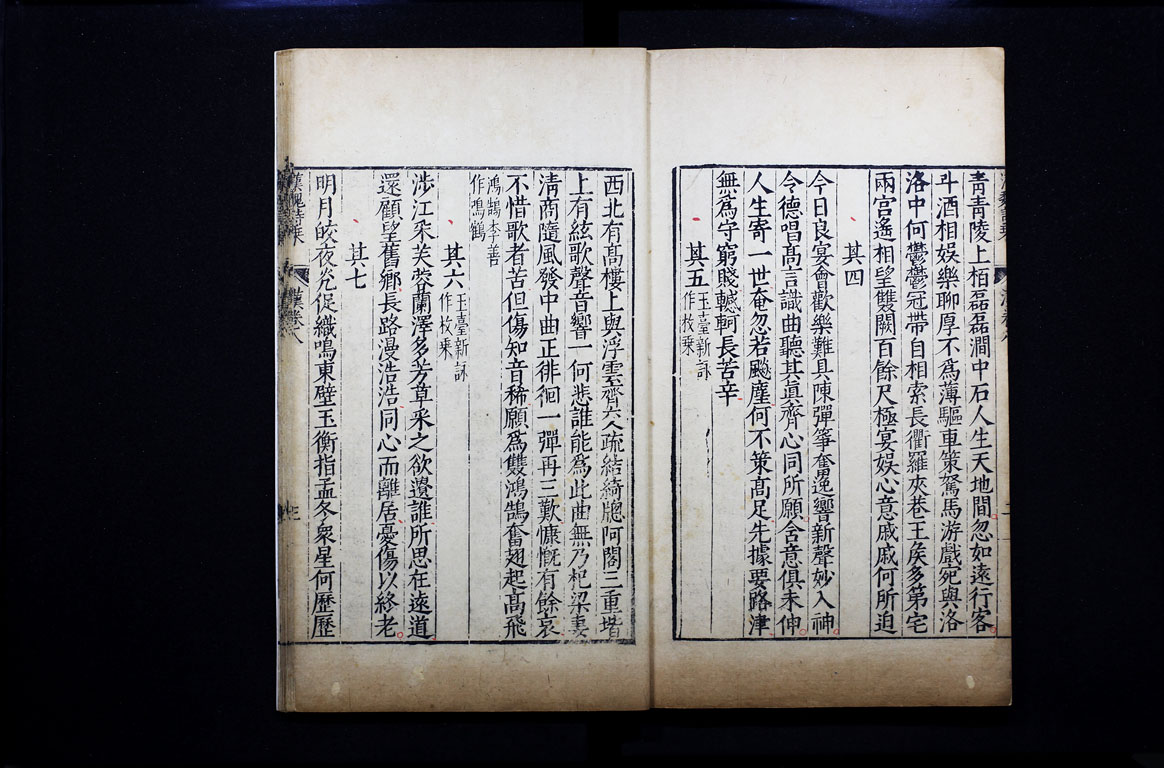 青青陵上栢磊磊澗中石人生天地間忽如遠行客
斗酒相娛樂聊厚不爲薄驅車策駑馬游戲宛與洛
洛中何鬱鬱冠帶自相索長衢羅夾巷王矦多第宅
兩宫遙相望雙闕百餘尺極宴娛心意戚戚何所迫
其四
今日良宴會歡樂難具陳彈箏奮逸響新聲妙入神
令德唱髙言識曲聽其眞齊心同所願含意俱未伸
人生寄一世奄忽若飈塵何不策髙足先據要路津
無爲守窮賤轗軻長苦辛
其五
玉臺新詠
作枚乗
西北有髙樓上與浮雲齊交疏結綺牕阿閣三重堦
上有絃歌聲音響一何悲誰能爲此曲無乃杞梁妻
淸商隨風發中曲正徘徊一彈再三歎慷慨有餘哀
不惜歌者苦但傷知音稀願爲雙鴻鵠奮翅起髙飛
鴻鵠李善
作鳴鶴
其六
玉臺新詠
作枚乗
涉江采芙蓉蘭澤多芳草采之欲遺誰所思在遠道
還顧望舊鄉長路漫浩浩同心而離居憂傷以終老
其七
明月皎夜光促織鳴東壁玉衡指孟冬衆星何歷歷
漢魏詩乗
漢卷八